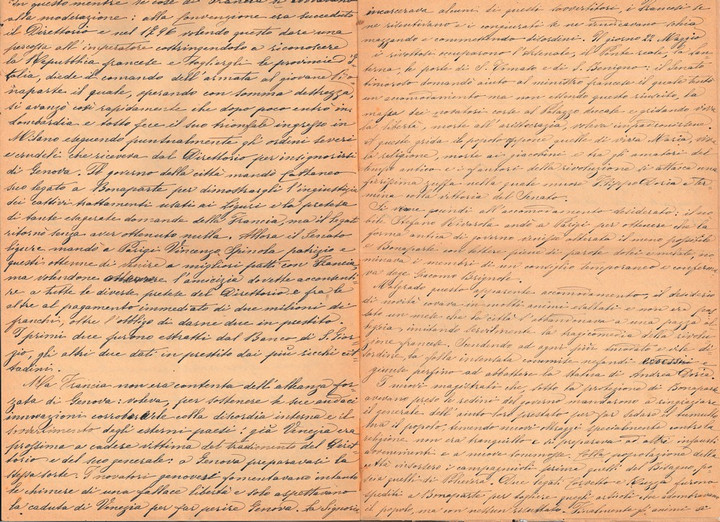 In questo mentre le cose di Francia si
alla moderazione: alla Convenzione era succeduto
il Direttorio e nel 1796 volendo questo dare una
percossa all'imperatore costringendolo a riconoscere
la Repubblica francese e togliergli le provincie d'I-
talia, diede il comando dell'armata al giovane Bo-
naparte il quale, operando con somma destrezza
si avanzò così rapidamente che dopo poco entrò in
Lombardia e tosto fece il suo trionfale ingresso in
Milano eseguendo puntualmente gli ordini severi
e crudeli che riceveva dal Direttorio per insignorirsi
di Genova. Il governo della città mandò Cattaneo
suo legato a Bonaparte per dimostrargli l'ingiustizia
dei cattivi trattamenti usati ai Liguri e la pretesa
di tante esagerate domande della Francia, ma il legato
ritornò senza aver ottenuto nulla. Allora il Senato
ligure mandò a Parigi Vincenzo Spinola patrizio e
questi ottenne di venire a migliori patti con Francia,
ma volendone l'amicizia dovette acconsenti-
re a tutte le diverse pretese del Direttorio e fra le
altre al pagamento immediato di due milioni di
franchi, oltre l'obbligo di darne due in prestito.
I primi due furono estratti dal Banco di S. Gior-
gio, gli altri due dati in prestito dai più ricchi cit-
tadini.
Ma Francia non era contenta dell'alleanza for-
zata di Genova: voleva, per sottenere le sue audaci
innovazioni colla discordia interna e il
degli esterni paesi: già Venezia era
prossima a cadere vittima del tradimento del Diret-
torio e del suo generale: a Genova preparavasi la
stessa sorte. I novatori genovesi fomentavano intanto
le chimere di una fallace libertà e solo aspettavano
la caduta di Venezia per far perire Genova. La Signoria
incarcerava alcuni di questi sovvertitori, i Francesi se
ne risentivano e i congiurati se ne andavano schia-
mazzando e commettendo disordini. Il giorno 22 Maggio
i rivoltosi occuparono l'arsenale, il Ponte reale, la Lan-
terna, le porte di S. Tomaso e di S. Benigno; il Senato
timoroso domandò aiuto al ministro francese il quale trattò
un accomodamento ma non essendo questo riuscito, la
massa dei novatori corse al Palazzo ducale e gridando viva
la libertà, morte all'aristocrazia, voleva impadronirsene.
A queste grida il popolo oppone quelle di viva Maria, viva
la religione, morte ai giacobini e tra gli amatori del
tempo antico e i fautori della rivoluzione si attacca una
fierissima zuffa nella quale muore Filippo Doria e
una volta vittoria del Senato.
Si viene quindi all'accomodamento desiderato: il no-
bil Stefano Rivarola andò a Parigi per ottenere che la
forma antica di governo venga alterata il meno possibile
e Bonaparte con lettere piene di parole dolci e
nava i membri di un consiglio temporaneo e conferma-
va doge Giacomo Brignole.
Malgrado questo apparente accomodamento, il desiderio
di novità covava in molti animi esaltati e non era pas-
sato un mese che la città s'abbandonava a una pazza al-
legria, imitando servilmente la della rivolu-
zione francese. Tendendo ad ogni più sfrenato e vile di-
sordine, la folla insensata commise nefandi eccessi
giunse persino ad abbattere la statua di Andrea Doria.
I nuovi magistrati che, sotto la protezione di Bonaparte
avevano preso le redini del governo mandarono a ringraziare
il generale dell'aiuto loro prestato per far sedare il tumulto
tra il popolo, tenendo nuovi mezzi specialmente contro la
religione non era tranquillo e si preparava ad altri infausti
avvenimenti e a nuove sommosse. Tosto, popolazione della
città insorsero i campagnoli prima quelli del Bisagno
poi quelli di Polcevera. Due legati furono
spediti a Bonaparte per togliere quegli articoli che sembravano
al popolo, ma non vollero Finalmente gli animi di